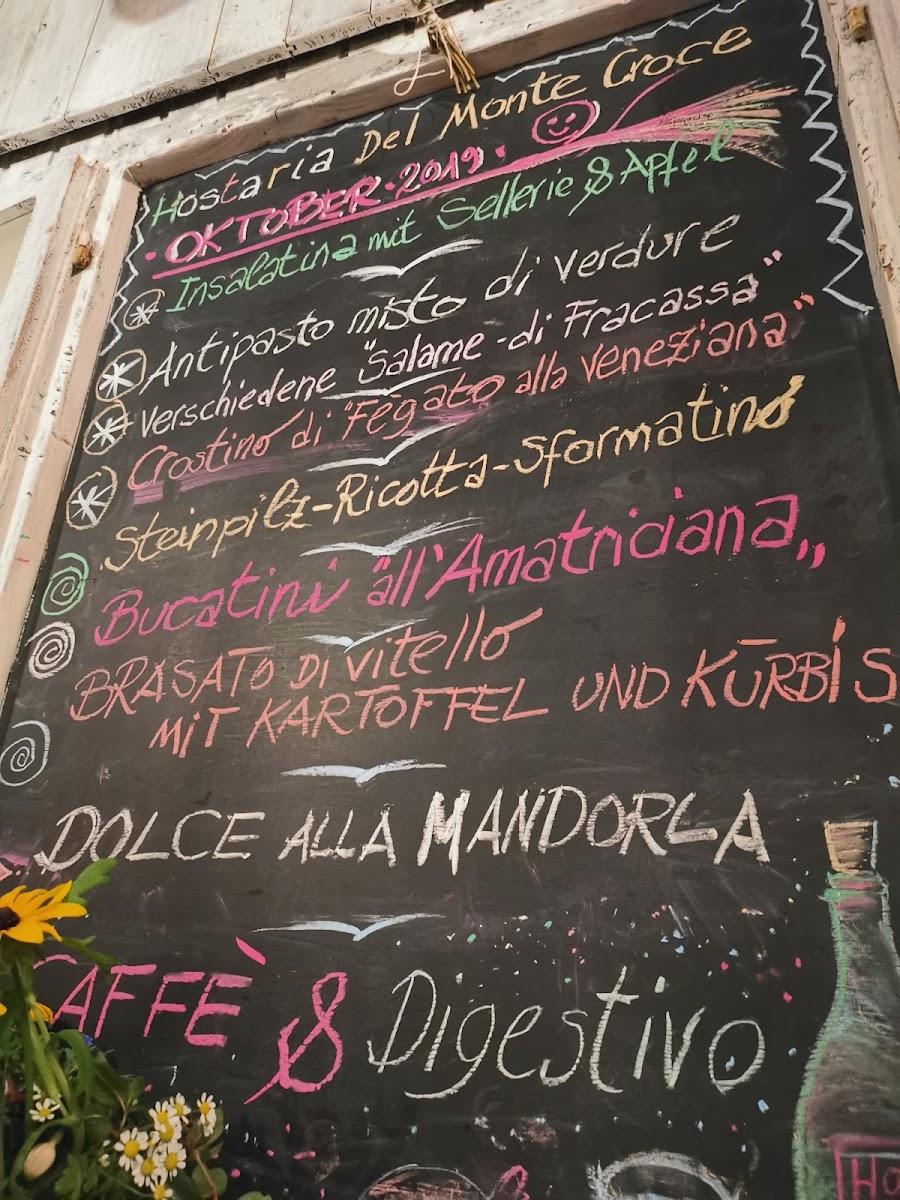 Hostaria Del Monte Croce
• OKTOBER • 2019 •
Insalatina mit Sellerie & Apfel
Antipasto misto di verdure
Verschiedene "Salame di Fracassa"
Crostino di "Fegato alla veneziana"
Steinpilz-Ricotta-Sformatino
Bucatini "all'Amatriciana„
BRASATO DI vitello
MIT KARTOFFEL UND KÜRBIS
DOLCE ALLA MANDORLA
CAFFÈ & Digestivo